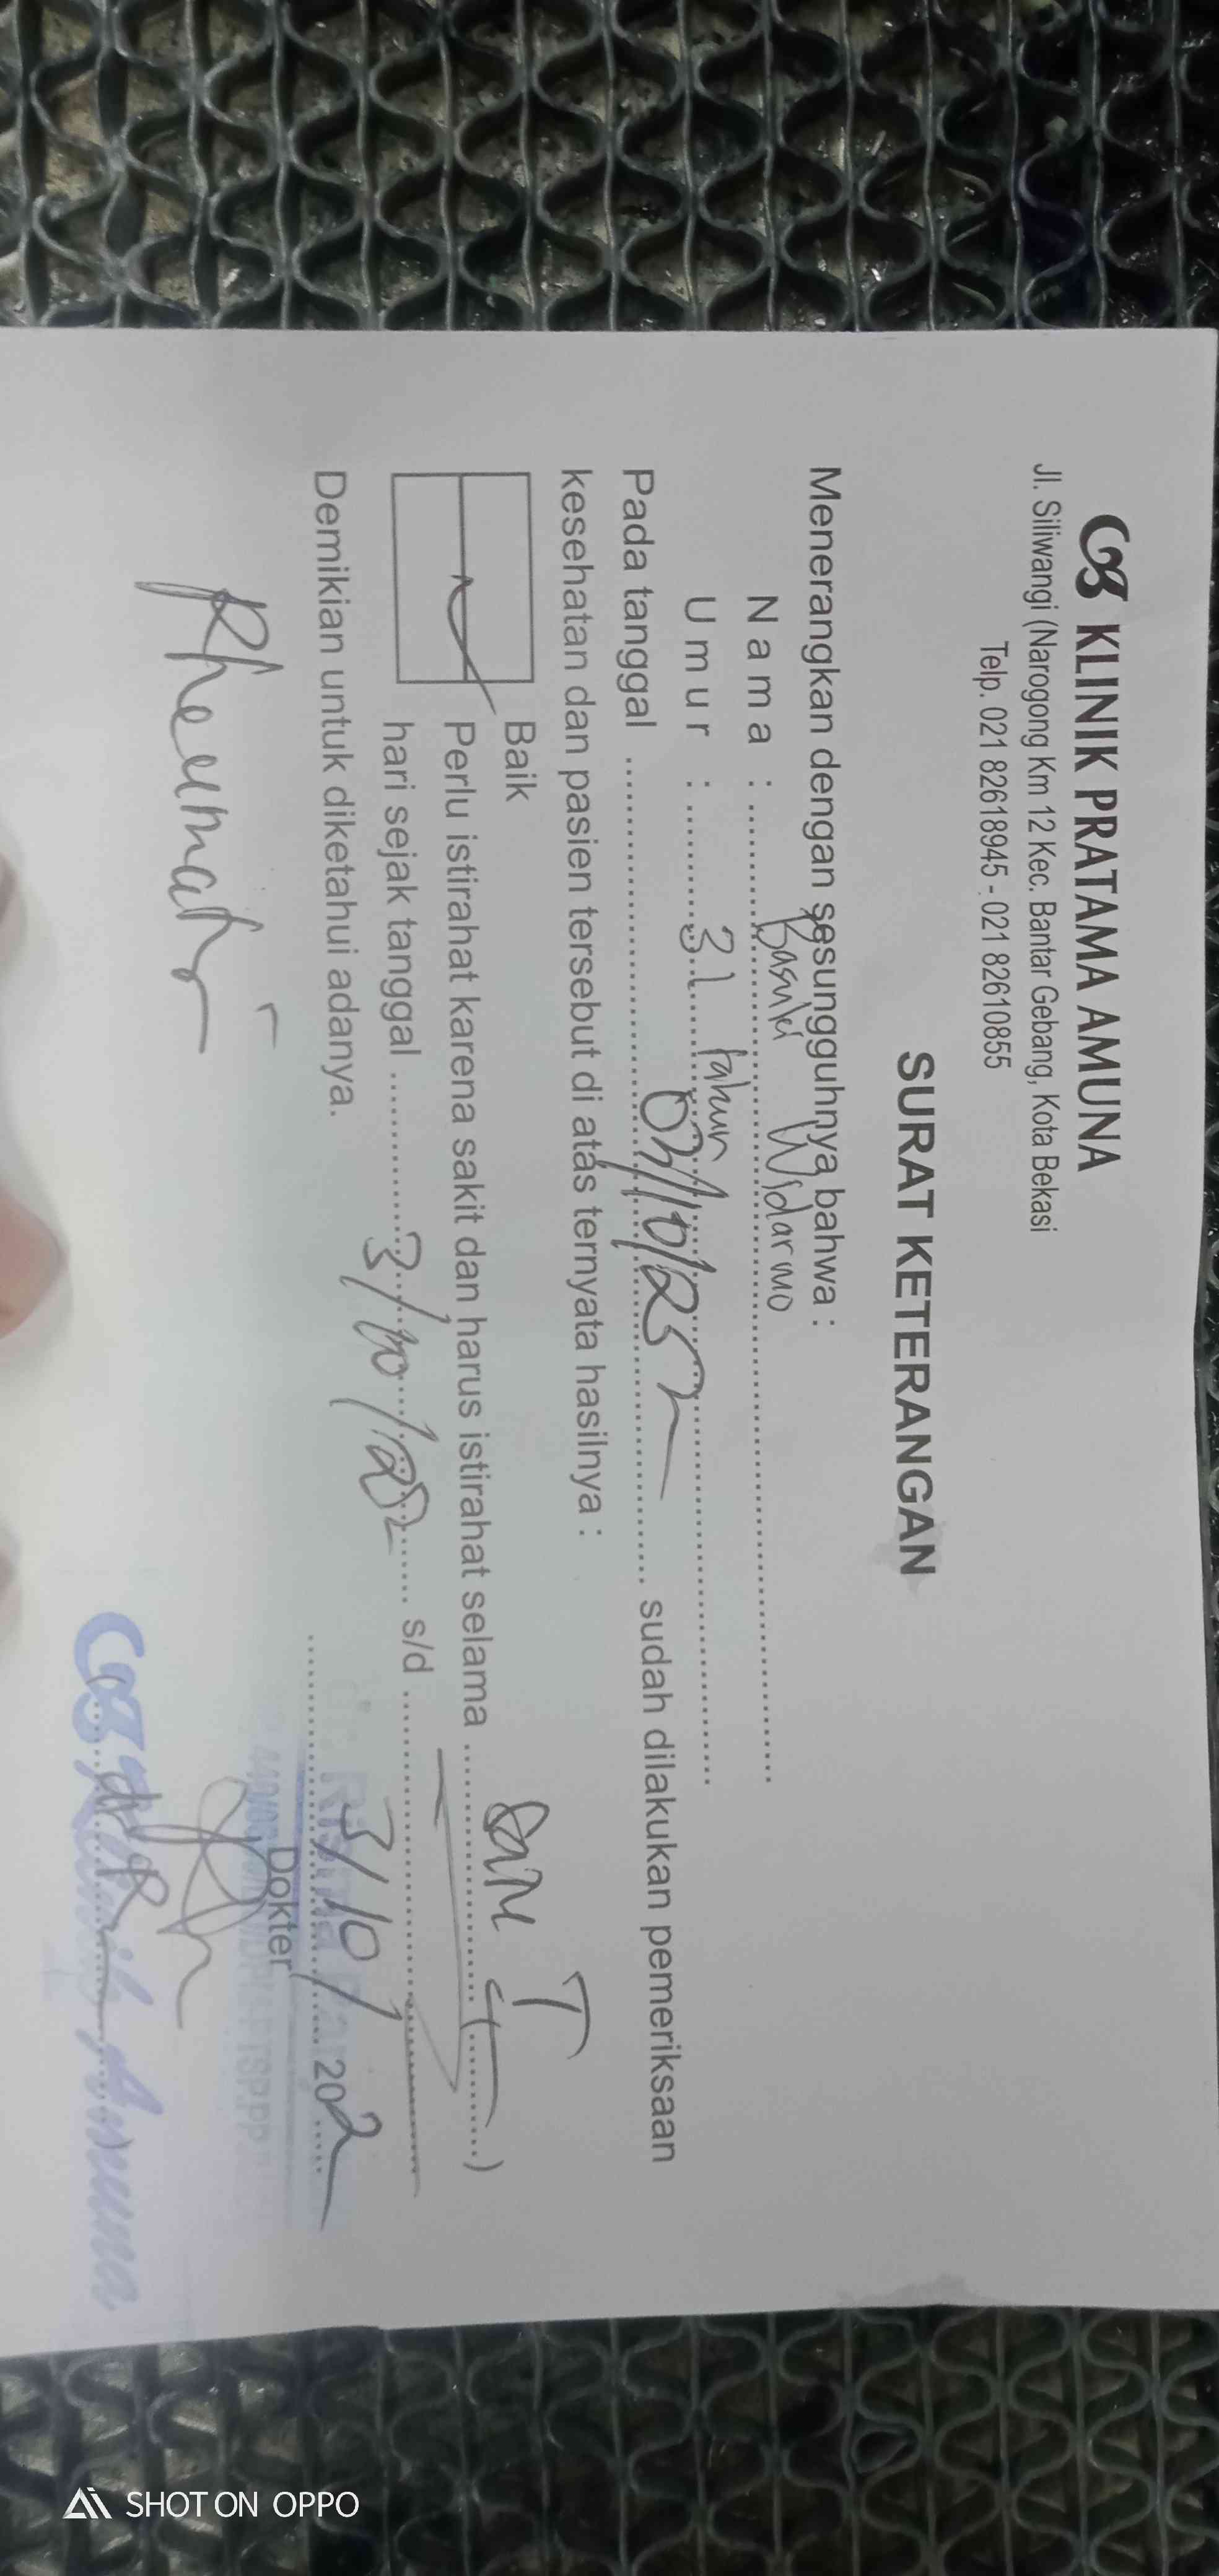 KLINIK PRATAMA AMUNA
Jl. Siliwangi (Narogong Km 12 Kec. Bantar Gebang, Kota Bekasi
Telp. 021 82618945 - 021 82610855
SURAT KETERANGAN
Menerangkan dengan sesungguhnya bahwa :
Nama : Basuki Widarmo
Umur : 31 tahun
Pada tanggal sudah dilakukan pemeriksaan
kesehatan dan pasien tersebut di atas ternyata hasilnya :
Baik
Perlu istirahat karena sakit dan harus istirahat selama
hari sejak tanggal 3/10/ s/d
Demikian untuk diketahui adanya.
3/10/ 202
Dokter
Amuna
SHOT ON OPPO